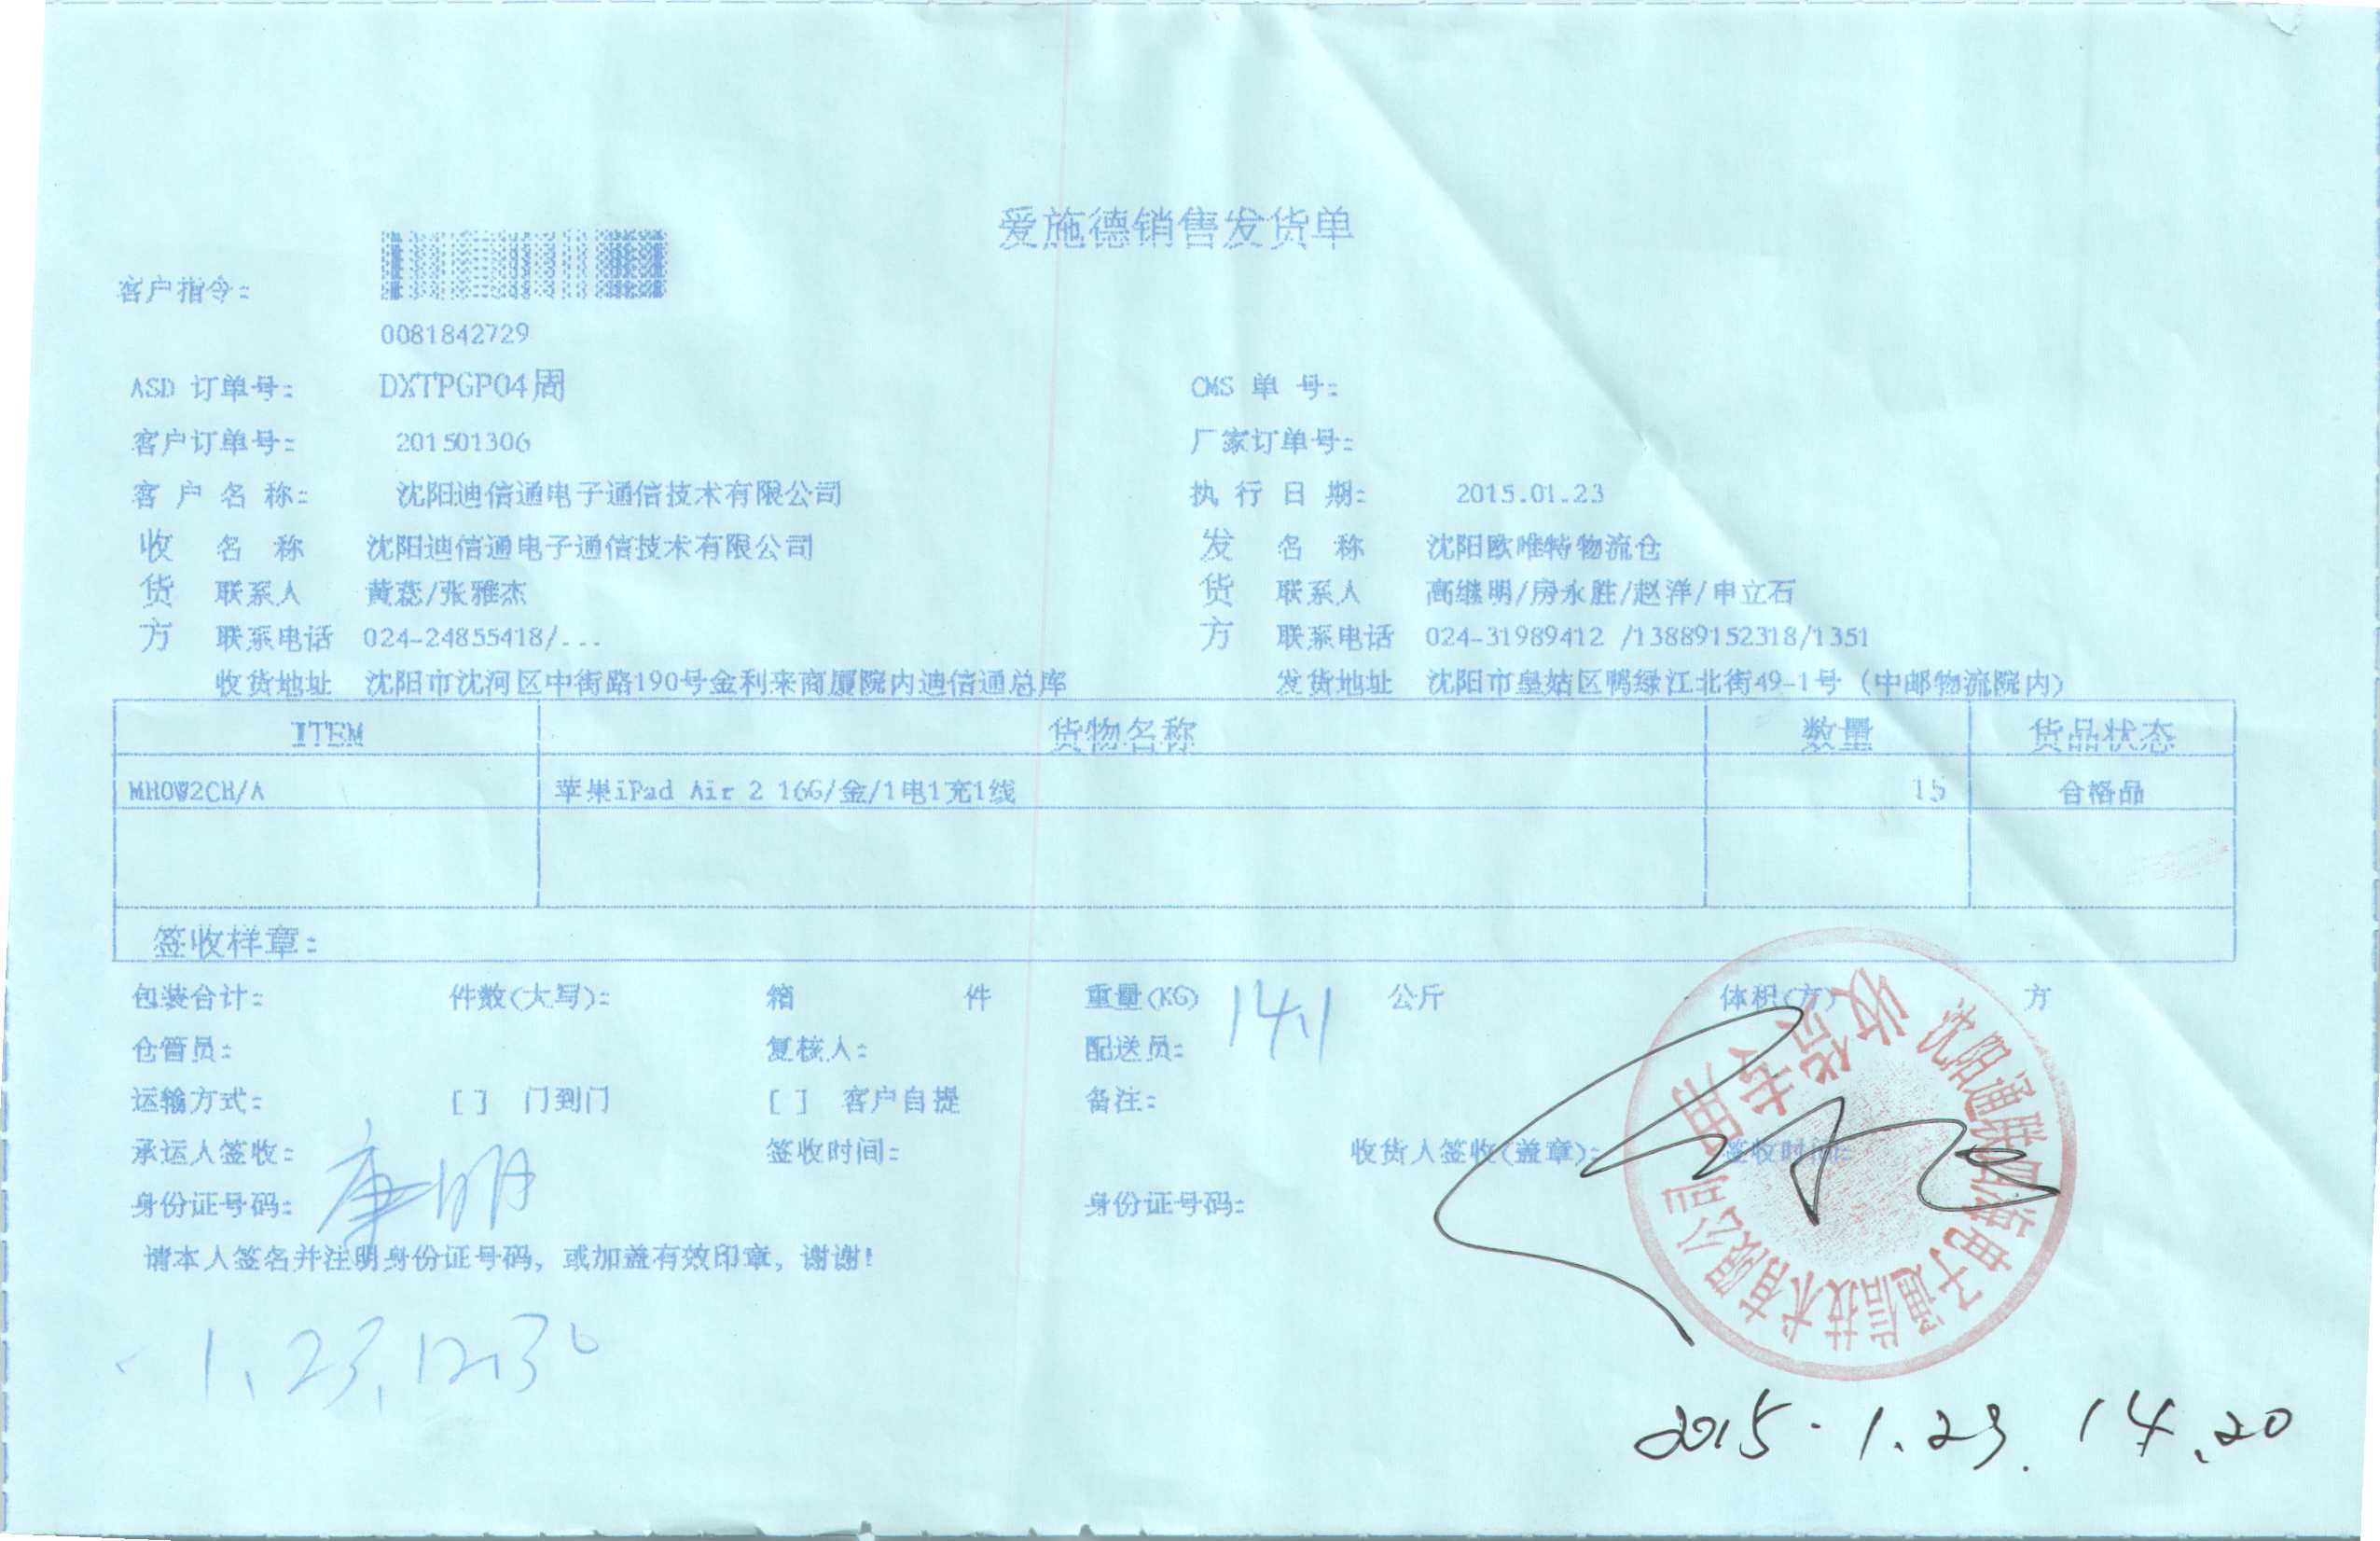 爱施德销售发货单
客户指令:
0081842729
ASD 订单号: DXTPGP04周 CMS 单 号:
客户订单号: 201501306 厂家订单号:
客 户 名 称: 沈阳迪信通电子通信技术有限公司 执 行 日 期: 2015.01.23
收 名 称 沈阳迪信通电子通信技术有限公司 发 名 称 沈阳欧唯特物流仓
货 联系人 黄蕊/张雅杰 货 联系人 高继明/房永胜/赵洋/申立石
方 联系电话 024-24855418/... 方 联系电话 024-31989412 /13889152318/1351
收货地址 沈阳市沈河区中街路190号金利来商厦院内迪信通总库 发货地址 沈阳市皇姑区鸭绿江北街49-1号 (中邮物流院内)
ITEM 货物名称 数量 货品状态
MH0W2CH/A 苹果iPad Air 2 16G/金/1电1充1线 15 合格品
签收样章:
包装合计: 件数(大写): 箱 件 重量(KG) 14.1 公斤 体积(方) 方
仓管员: 复核人: 配送员:
运输方式: [ ] 门到门 [ ] 客户自提 备注:
承运人签收: 康明 签收时间: 收货人签收(盖章): 签收时间:
身份证号码: 身份证号码:
请本人签名并注明身份证号码, 或加盖有效印章, 谢谢!
1.23.12.30
收货专用
2015.1.23. 14.20